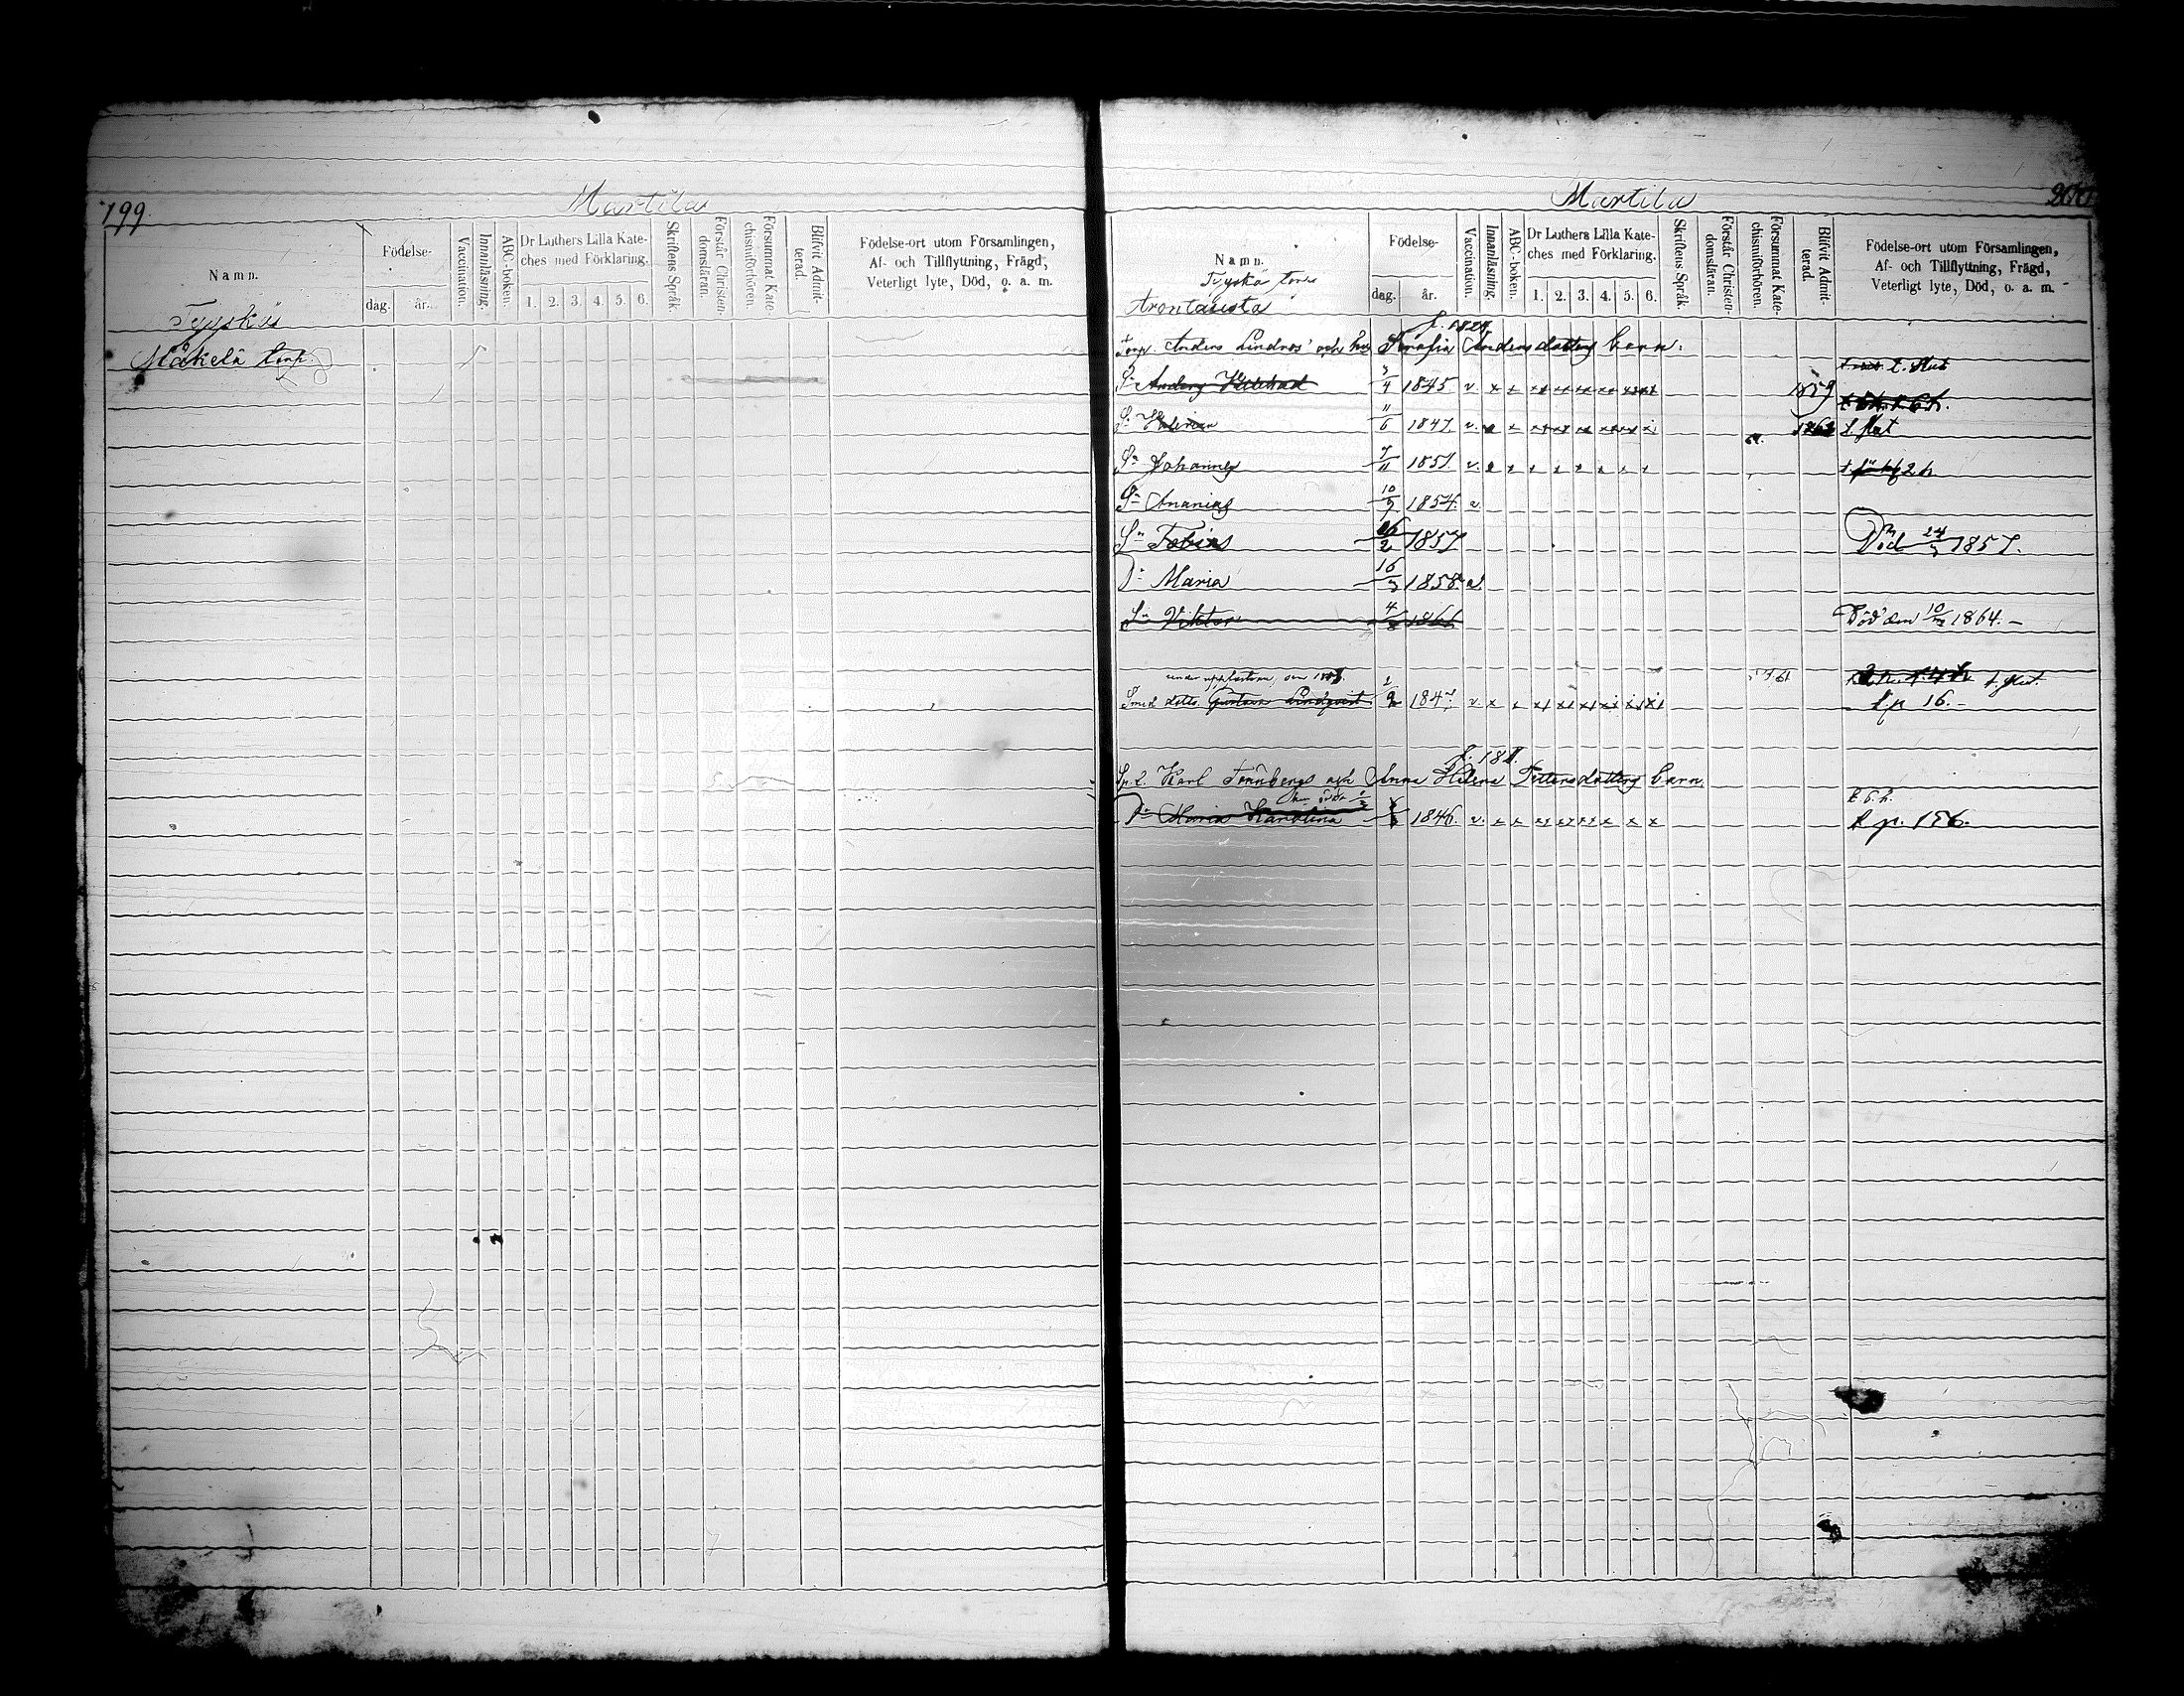 199.
Martila
Namn.
Födelse-
dag.
år.
Vaccination.
Innanläsning.
ABC-boken.
Dr Luthers Lilla Kate-
ches med Förklaring.
1. 2. 3. 4. 5. 6.
Skriftens Språk.
Förstår Christen-
domsläran.
Försummat Kate-
chismiförhören.
Blifvit Admit-
terad.
Födelse-ort utom Församlingen,
Af- och Tillflyttning, Frägd,
Veterligt lyte, Död, o. a. m.
Tyyskä
Mäkelä torp.
Martila
200
Namn.
Födelse-
dag.
år.
Vaccination.
Innanläsning.
ABC-boken.
Dr Luthers Lilla Kate-
ches med Förklaring.
1. 2. 3. 4. 5. 6.
Skriftens Språk.
Förstår Christen-
domsläran.
Försummat Kate-
chismiförhören.
Blifvit Admit-
terad.
Födelse-ort utom Församlingen,
Af- och Tillflyttning, Frägd,
Veterligt lyte, Död, o. a. m.
Tyyskä torp
Arontausta
Torp. Anders Lindros' och hu Serafia Andersdotters barn:
Sn Anders 3/4 1845 v. x x 1859
11/6 1847 v. x x 1863
Sn Johannes 7/11 1851. v. x x
Sn Ananias 10/9 1854. v.
Sn Tobias 26/2 1857 Död 24/3 1857.
Dr Maria 16/3 1858 v.
Sn Viktor 4/8 1861 Död den 10/12 1864.
Smed dottr. Gustava Lindqvist 1/2 184 v. x x
f. p 16.
Karl Tönnbergs och Anna Helena Pettersdotters barn.
Dr Maria Karolina 1846. v. x x
t. 6. h.
f. p. 156.